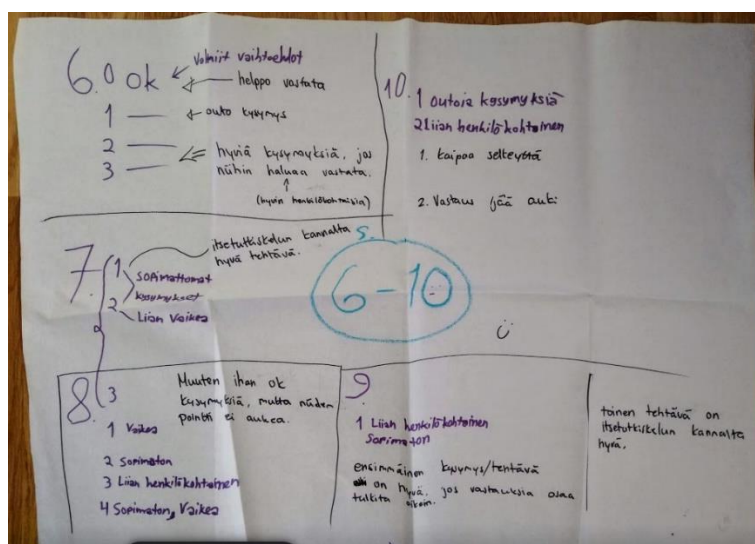 6. 0 ok
Valmiit vaihtoehdot
helppo vastata
1 — outo kysymys
2 —
3 —
hyviä kysymyksiä, jos
näihin haluaa vastata.
(hyvin henkilökohtaisia)
10.
1 outoja kysymyksiä
2 Liian henkilökohtainen
1. kaipaa selkeyttä
2. Vastaus jää auki
7.
1
itsetutkiskelun kannalta
hyvä tehtävä.
sopimattomat
kysymykset
2
Liian Vaikea
3
s. 6-10
8.
Muuten ihan ok
kysymyksiä, mutta näiden
pointti ei aukea.
1 Vaikea
2 Sopimaton
3 Liian henkilökohtainen
4 Sopimaton, Vaikea
9.
1 Liian henkilökohtainen
Sopimaton
ensimmäinen kysymys/tehtävä
on hyvä, jos vastauksia osaa
tulkita oikein.
toinen tehtävä on
itsetutkiskelun kannalta
hyvä.